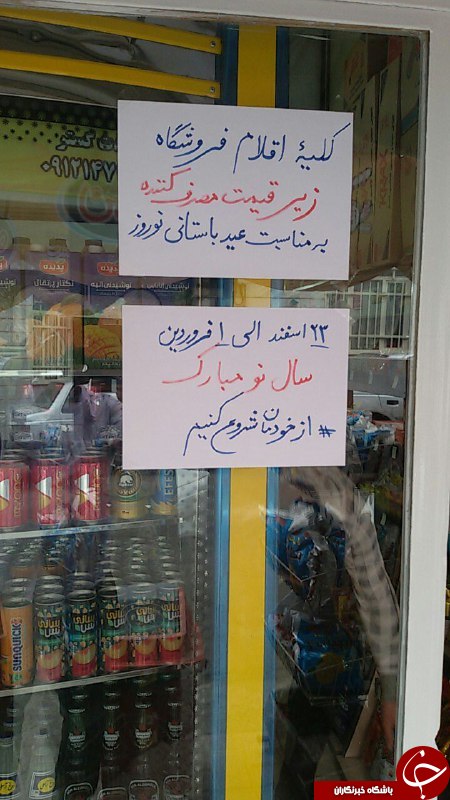 کلیهٔ اقلام فروشگاه
زیر قیمت مصرف کننده
به مناسبت عید باستانی نوروز
۲۳ اسفند الی ۱ فروردین
سال نو مبارک
# از خودمان شروع کنیم
۰۹۱۲۱۴۷
پدیده
پدیده
SUNQUICK
باشگاه خبرنگاران